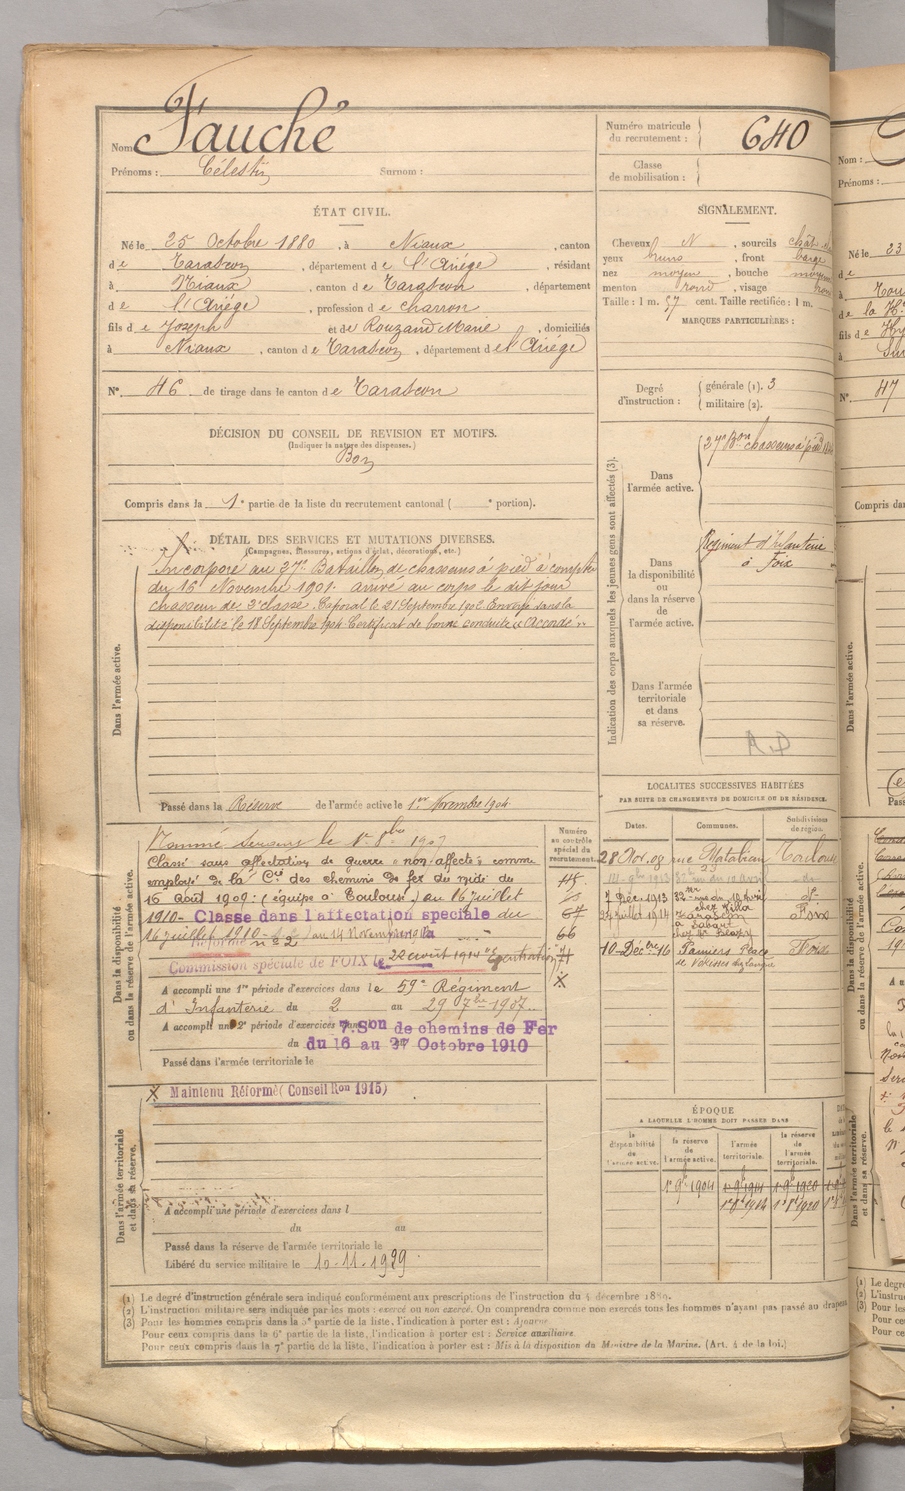 Nom Fauché
Prénoms : Célestin Surnom :
Numéro matricule du recrutement : 640
Classe de mobilisation :
ÉTAT CIVIL.
Né le 25 Octobre 1880, à Niaux, canton
de Tarascon, département de l'Ariège, résidant
à Niaux, canton de Tarascon, département
de l'Ariège, profession de charron
fils de Joseph et de Rouzaud Marie, domiciliés
à Niaux, canton de Tarascon, département de l'Ariège
SIGNALEMENT.
Cheveux N, sourcils chât
yeux bruns, front large
nez moyen, bouche moyen
menton rond, visage rond
Taille : 1 m. 57 cent. Taille rectifiée : 1 m.
MARQUES PARTICULIÈRES :
N° 46 de tirage dans le canton de Tarascon
Degré d'instruction : générale (1). 3
militaire (2).
DÉCISION DU CONSEIL DE REVISION ET MOTIFS.
(Indiquer la nature des dispenses.)
Bon
Compris dans la 1e partie de la liste du recrutement cantonal ( e portion).
DÉTAIL DES SERVICES ET MUTATIONS DIVERSES.
(Campagnes, blessures, actions d'éclat, décorations, etc.)
Dans l'armée active.
Incorporé au 27e Bataillon de chasseurs à pied à compter
du 16 Novembre 1901. arrivé au corps le dit jour
chasseur de 2e classe. Caporal le 21 Septembre 1902. Envoyé dans la
disponibilité le 18 Septembre 1904. Certificat de bonne conduite "Accordé".
Passé dans la Réserve de l'armée active le 1er Novembre 1904
Indication des corps auxquels les jeunes gens sont affectés (3).
Dans l'armée active.
27e Bon chasseurs à pied
Dans la disponibilité ou dans la réserve de l'armée active.
Régiment d'Infanterie
à Foix
Dans l'armée territoriale et dans sa réserve.
LOCALITÉS SUCCESSIVES HABITÉES
PAR SUITE DE CHANGEMENTS DE DOMICILE OU DE RÉSIDENCE.
Dates. Communes. Subdivisions de région.
28 Nov. 08 rue Matabiau Toulouse
7 Déc 1913
Juillet 1914 Tarascon Foix
à Sabart
10 Décbre 16 Pamiers Place Foix
Dans la disponibilité ou dans la réserve de l'armée active.
Numéro au contrôle spécial du recrutement.
Nommé Sergent le 1er 8bre 1907
Classé sous affectation de guerre "non affecté" comme
employé de la Cie des chemins de fer du midi du
16 Août 1909 : (équipe à Toulouse) au 16 juillet
1910- Classe dans l'affectation spéciale du
16 juillet 1910 au 14 Novembre
Réformé n° 2
Commission spéciale de FOIX le
66
A accompli une 1re période d'exercices dans le 59e Régiment
d'Infanterie du 2 au 29 7bre 1907
A accompli une 2e période d'exercices dans
7. Son de chemins de Fer
du 16 au 27 Octobre 1910
Passé dans l'armée territoriale le
Dans l'armée territoriale et dans sa réserve.
X Maintenu Réformé (Conseil Ron 1915)
A accompli une période d'exercices dans l
du au
Passé dans la réserve de l'armée territoriale le
Libéré du service militaire le 10.11.1929
ÉPOQUE
A LAQUELLE L'HOMME DOIT PASSER DANS
la disponibilité de l'armée active. la réserve de l'armée active. l'armée territoriale. la réserve de l'armée territoriale.
1er 9bre 1904
(1) Le degré d'instruction générale sera indiqué conformément aux prescriptions de l'instruction du 4 décembre 1889.
(2) L'instruction militaire sera indiquée par les mots : exercé ou non exercé. On comprendra comme non exercés tous les hommes n'ayant pas passé au drapeau
(3) Pour les hommes compris dans la 5e partie de la liste, l'indication à porter est : Ajourné
Pour ceux compris dans la 6e partie de la liste, l'indication à porter est : Service auxiliaire.
Pour ceux compris dans la 7e partie de la liste, l'indication à porter est : Mis à la disposition du Ministre de la Marine. (Art. 4 de la loi.)